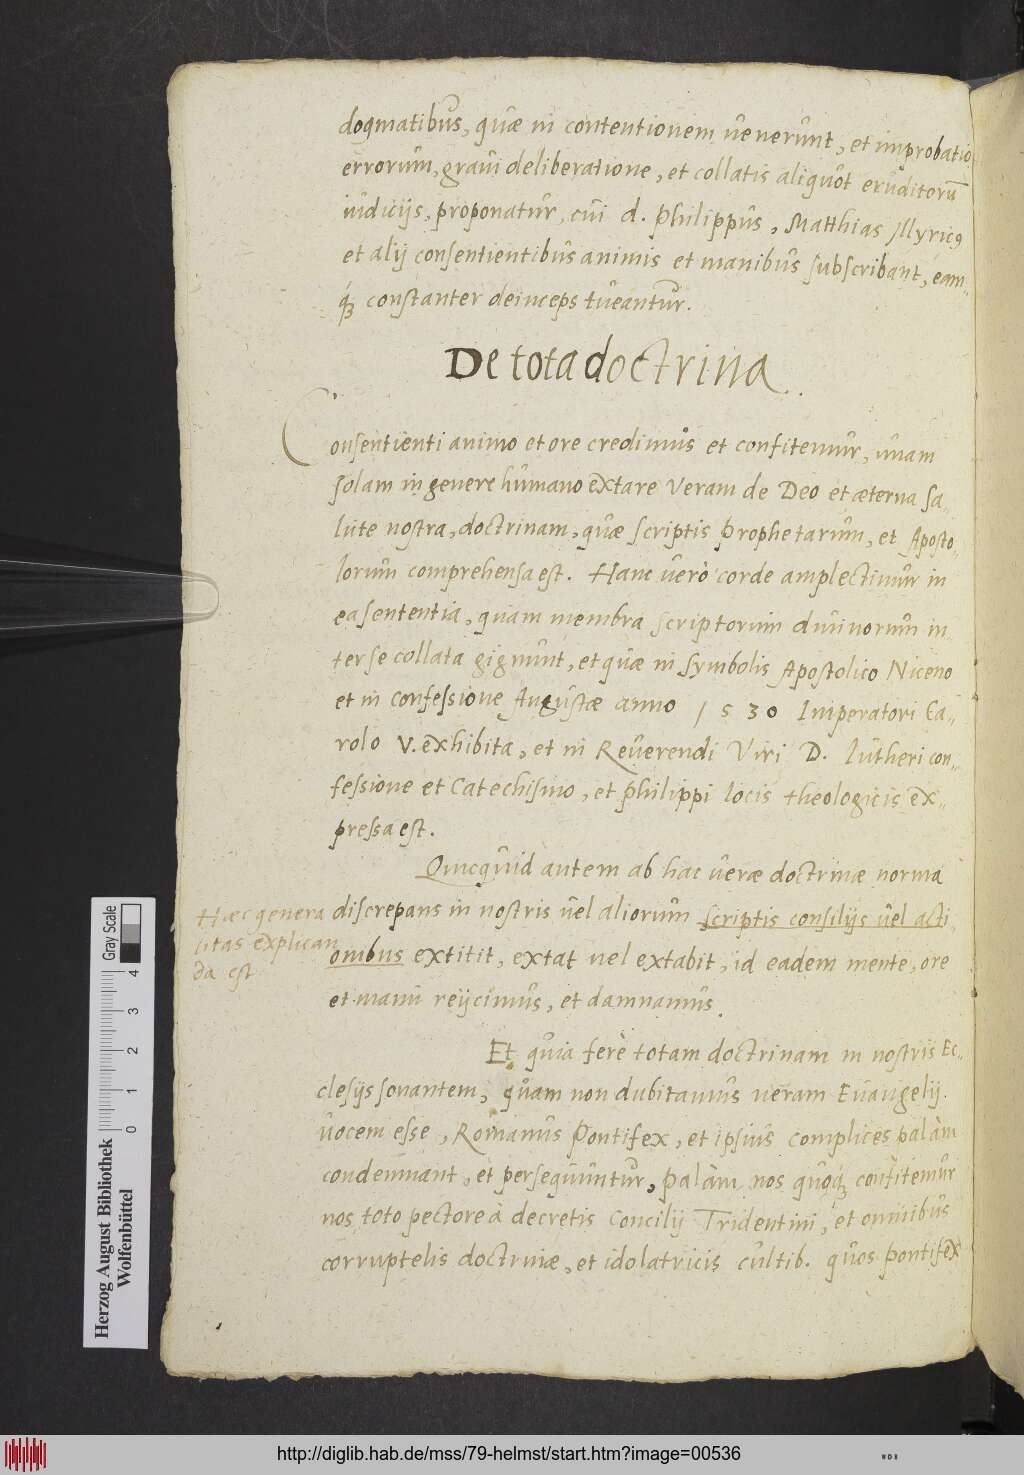 dogmatibus, quæ in contentionem uenerunt, et improbatio
errorum, graui deliberatione, et collatis aliquot eruditorū
iudicijs, proponatur, cui d. Philippus, Matthias Jllyricꝰ
et alij consentientibus animis et manibus subscribant, eam-
q́ꝫ constanter deinceps tueantur.
De tota doctrina
Consentienti animo et ore credimus et confitemur, unam
solam in genere humano extare veram de Deo et æterna sa-
lute nostra, doctrinam, quæ scriptis Prophetarum, et Aposto-
lorum comprehensa est. Hanc uerò corde amplectimur in
ea sententia, quam membra scriptorum diuinorum in-
ter se collata gignunt, et quæ in Symbolis Apostolico Niceno
et in confessione Augustæ anno 1530 Imperatori Ca-
rolo V. exhibita, et in Reuerendi Viri D. Lutheri con-
fessione et Catechismo, et Philippi locis theologicis ex-
pressa est.
Quicquid autem ab hac ueræ doctrinæ norma
discrepans in nostris uel aliorum scriptis consilijs uel acti-
onibus extitit, extat uel extabit, id eadem mente, ore
et manu reijcimus, et damnamus.
Hæc genera
litas explican
da est
Et quia ferè totam doctrinam in nostris Ec-
clesijs sonantem, quam non dubitamus ueram Euangelij
uocem esse, Romanus Pontifex, et ipsius complices palàm
condemnant, et persequuntur, palàm nos quoq́ꝫ confitemur
nos toto pectore à decretis Concilij Tridentini, et omnibus
corruptelis doctrinæ, et idolatricis cultib. quos pontifex
Herzog August Bibliothek
Wolfenbüttel
0 1 2 3 4
Gray Scale
http://diglib.hab.de/mss/79-helmst/start.htm?image=00536
WDB